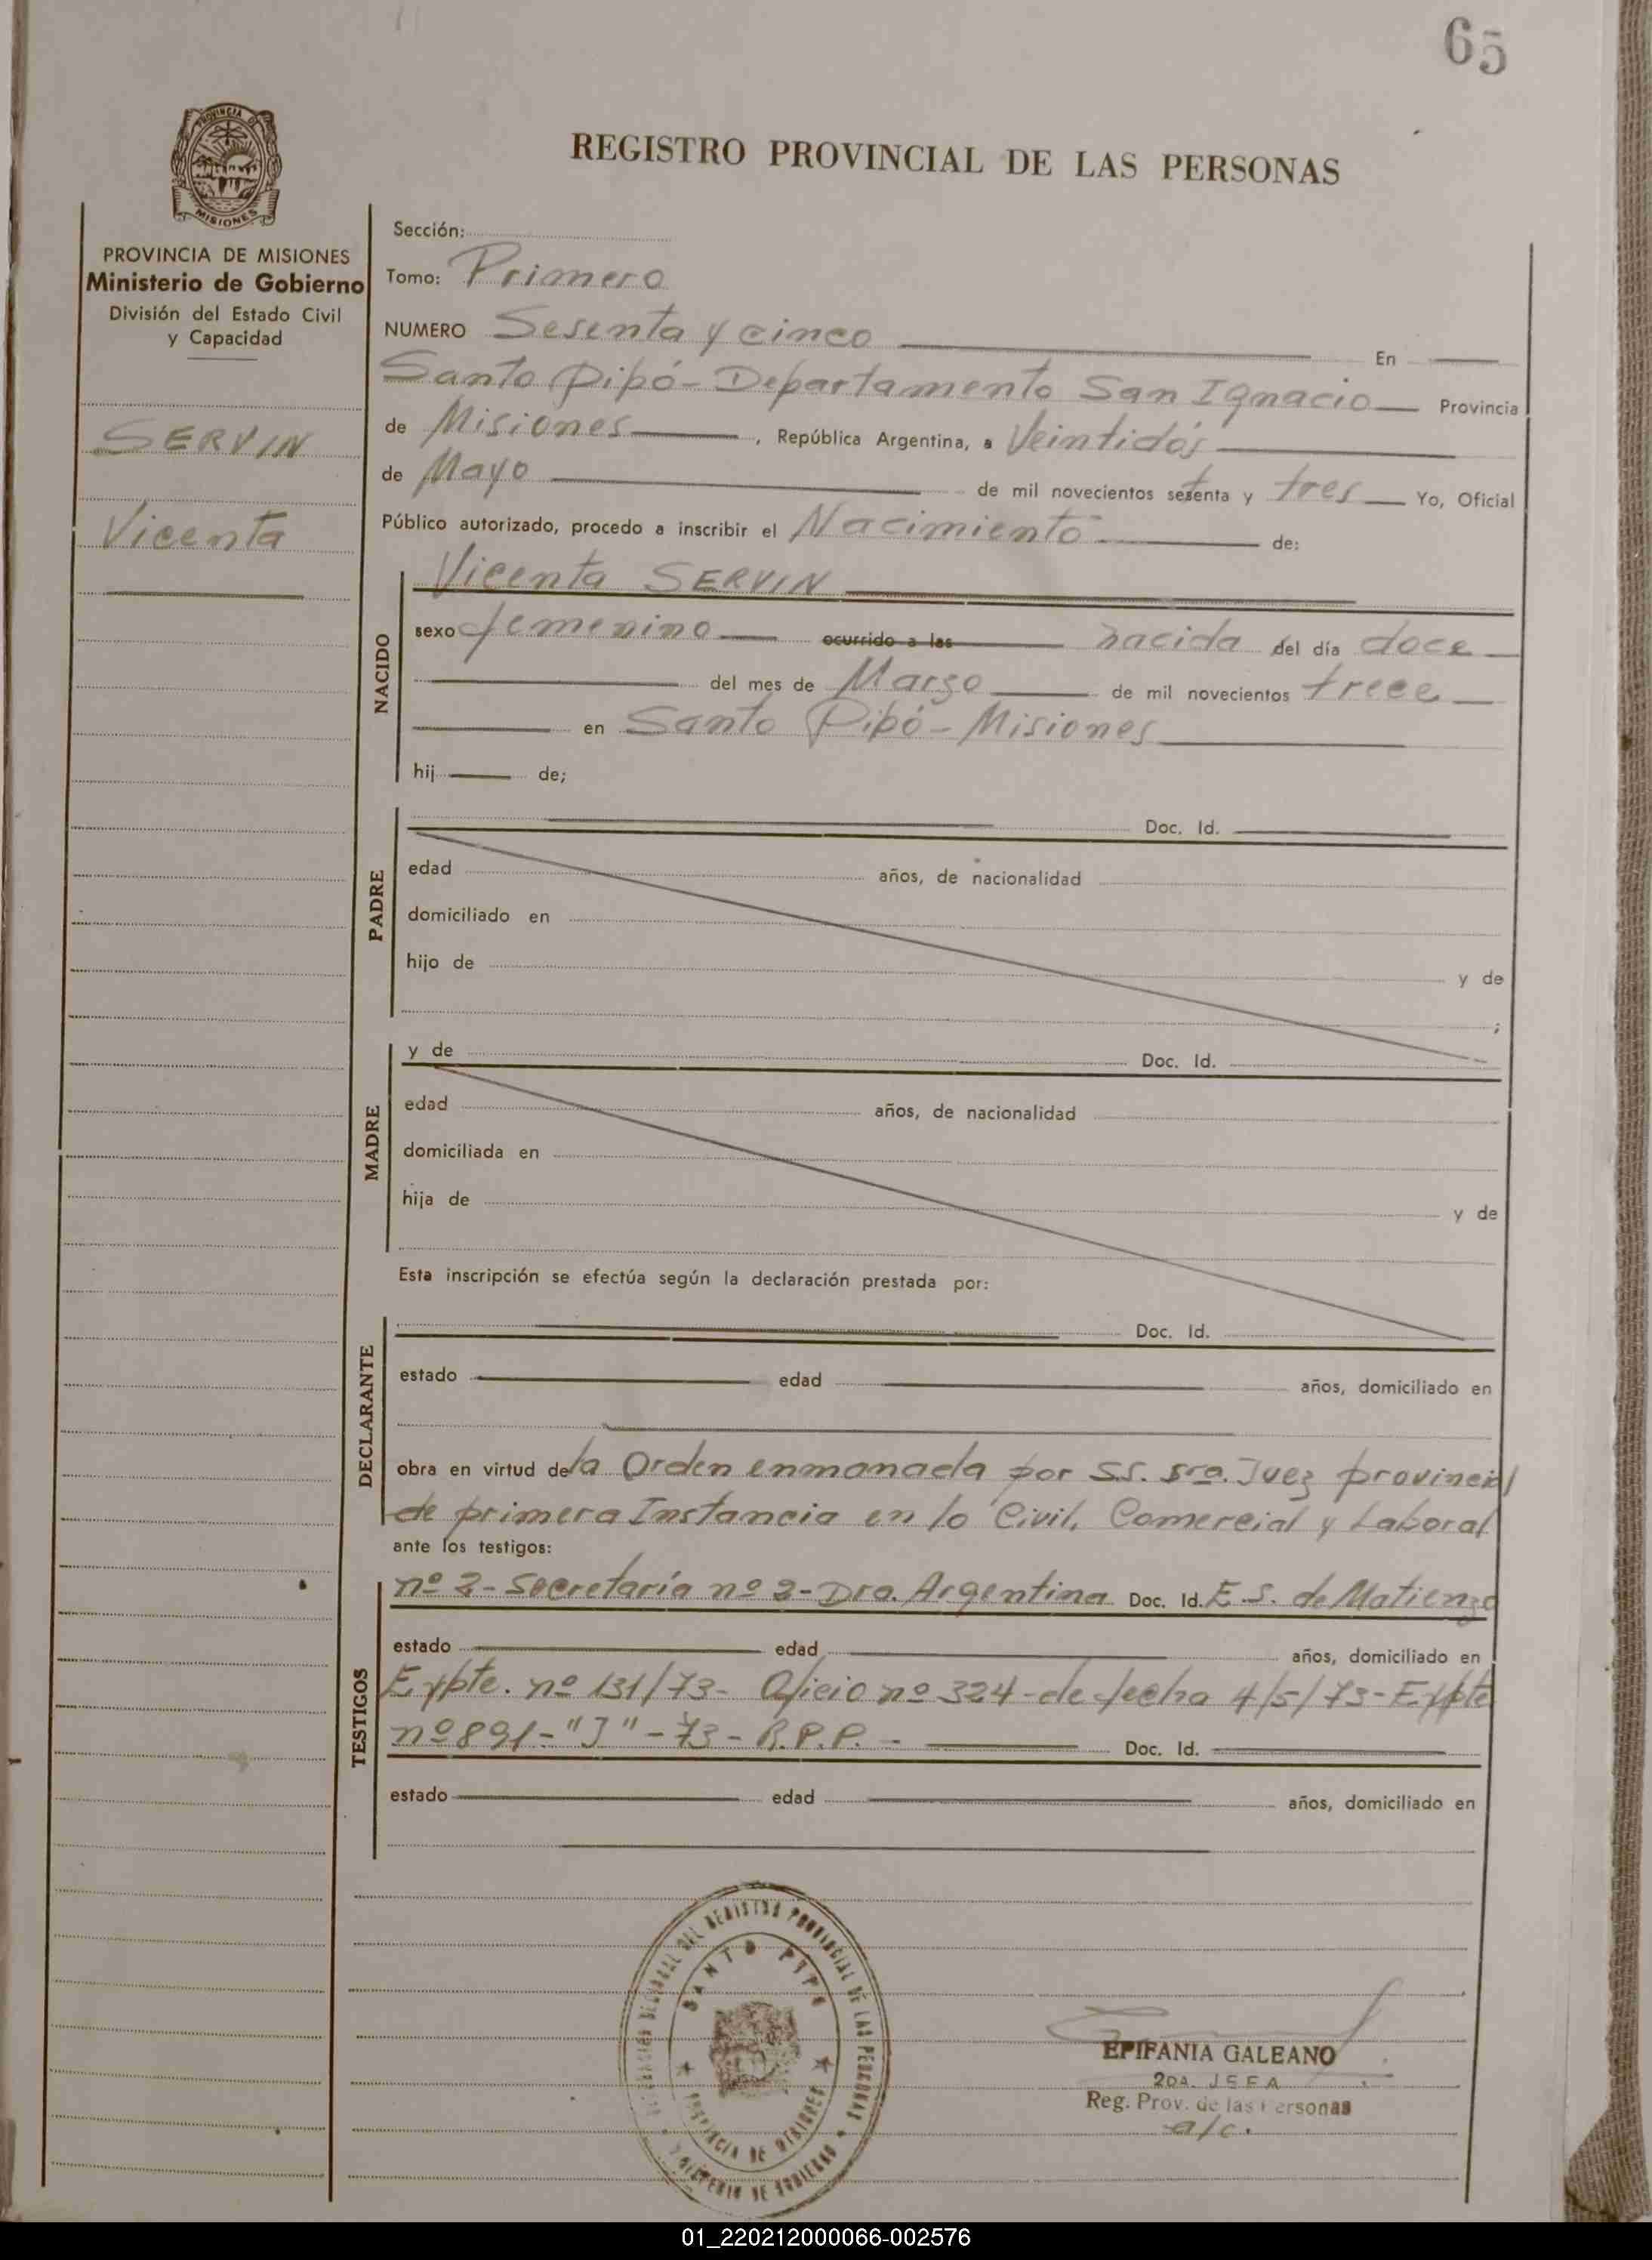 65
PROVINCIA DE
MISIONES
REGISTRO PROVINCIAL DE LAS PERSONAS
PROVINCIA DE MISIONES
Ministerio de Gobierno
División del Estado Civil
y Capacidad
SERVIN
Vicenta
Sección:
Tomo: Primero
NUMERO Sesenta y cinco En
Santo Pipó - Departamento San Ignacio Provincia
de Misiones, República Argentina, a Veintidós
de Mayo de mil novecientos setenta y tres Yo, Oficial
Público autorizado, procedo a inscribir el Nacimiento de:
Vicenta SERVIN
NACIDO
sexo femenino ocurrido a las nacida del día doce
del mes de Marzo de mil novecientos trece
en Santo Pipó - Misiones
hij de;
PADRE
Doc. Id.
edad años, de nacionalidad
domiciliado en
hijo de y de
;
MADRE
y de Doc. Id.
edad años, de nacionalidad
domiciliada en
hija de y de
Esta inscripción se efectúa según la declaración prestada por:
DECLARANTE
Doc. Id.
estado edad años, domiciliado en
obra en virtud de la Orden enmanada por S.S. sra. Juez provincial
de primera Instancia en lo Civil, Comercial y Laboral
ante los testigos:
TESTIGOS
nº 2 - Secretaría nº 3 - Dra. Argentina Doc. Id. E.S. de Matienzo
estado edad años, domiciliado en
Expte. nº 131/73 - Oficio nº 324 - de fecha 4/5/73 - Expte
nº 891 - "J" - 73 - R.P.P. - Doc. Id.
estado edad años, domiciliado en
DEL REGISTRO PROVINCIAL DE LAS PERSONAS
SANTO PIPO
PROVINCIA DE MISIONES
MINISTERIO DE GOBIERNO
EPIFANIA GALEANO
2DA. JEFA
Reg. Prov. de las Personas
a/c.
01_220212000066-002576